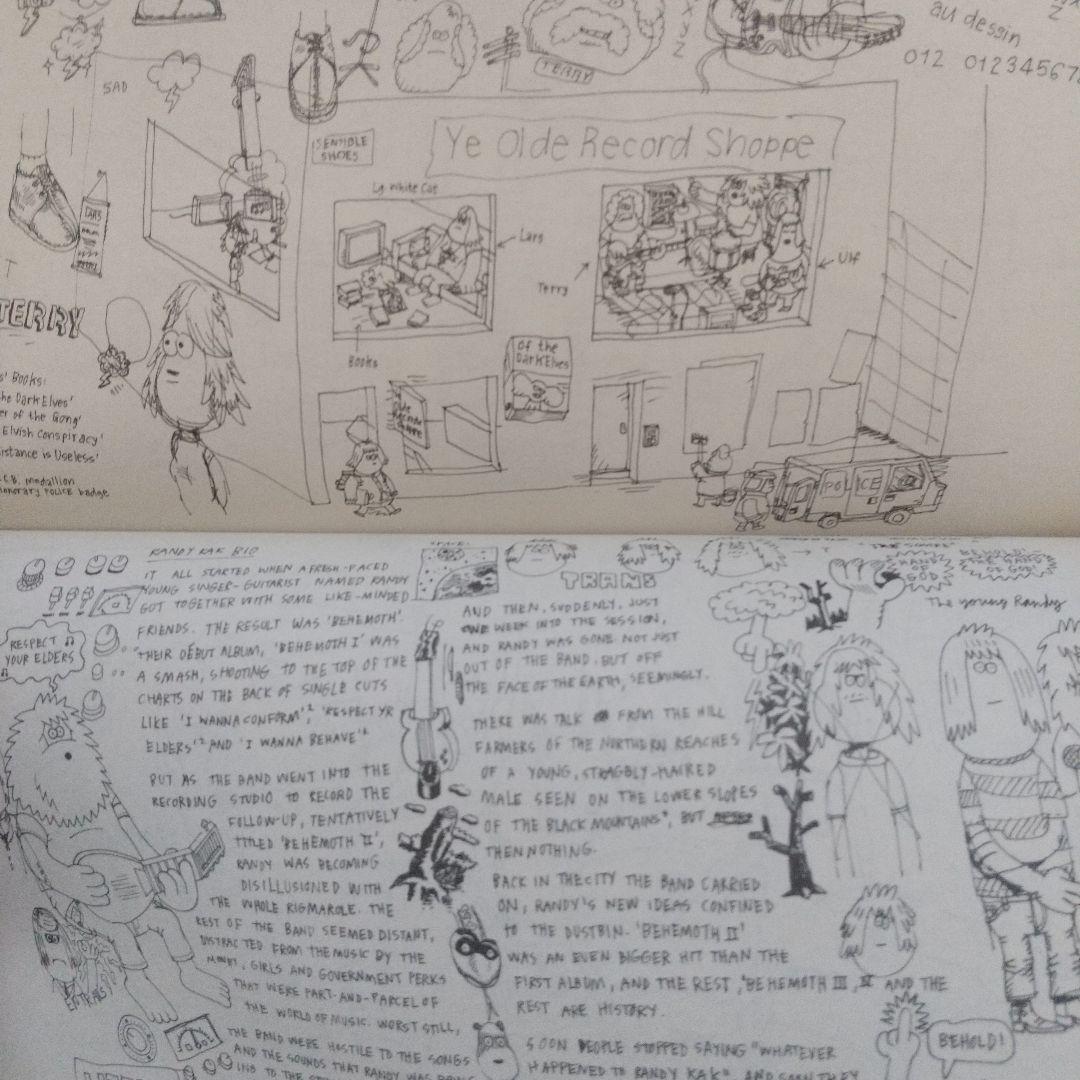 au dessin
Z
Z
012 01234567
TERRY
SAD
SENSIBLE
SHOES
Ye Olde Record Shoppe
Lg White Cat
Lars
LARS
Terry
Ulf
TERRY
Books
of the
Dark Elves
Books:
the Dark Elves'
er of the Gong'
Elvish Conspiracy'
istance is Useless'
C.B. medallion
honorary police badge
POLICE
RANDY KAK BIO
IT ALL STARTED WHEN A FRESH-FACED
YOUNG SINGER-GUITARIST NAMED RANDY
GOT TOGETHER WITH SOME LIKE-MINDED
FRIENDS. THE RESULT WAS 'BEHEMOTH'.
THEIR DEBUT ALBUM, 'BEHEMOTH I' WAS
A SMASH, SHOOTING TO THE TOP OF THE
CHARTS ON THE BACK OF SINGLE CUTS
LIKE 'I WANNA CONFORM', 'RESPECT YR
ELDERS' AND 'I WANNA BEHAVE'
BUT AS THE BAND WENT INTO THE
RECORDING STUDIO TO RECORD THE
FOLLOW-UP, TENTATIVELY
TITLED 'BEHEMOTH II',
RANDY WAS BECOMING
DISILLUSIONED WITH
THE WHOLE RIGMAROLE. THE
REST OF THE BAND SEEMED DISTANT,
DISTRACTED FROM THE MUSIC BY THE
MONEY, GIRLS AND GOVERNMENT PERKS
THAT WERE PART-AND-PARCEL OF
THE WORLD OF MUSIC. WORST STILL,
THE BAND WERE HOSTILE TO THE SONGS
AND THE SOUNDS THAT RANDY WAS
RESPECT
YOUR ELDERS
ENTRAILS
TRANS
AND THEN, SUDDENLY, JUST
ONE WEEK INTO THE SESSION,
AND RANDY WAS GONE. NOT JUST
OUT OF THE BAND. BUT OFF
THE FACE OF THE EARTH, SEEMINGLY.
THERE WAS TALK FROM THE HILL
FARMERS OF THE NORTHERN REACHES
OF A YOUNG, STRAGGLY-HAIRED
MALE SEEN ON THE LOWER SLOPES
OF THE BLACK MOUNTAINS, BUT
THEN NOTHING.
BACK IN THE CITY THE BAND CARRIED
ON, RANDY'S NEW IDEAS CONFINED
TO THE DUSTBIN. 'BEHEMOTH II'
WAS AN EVEN BIGGER HIT THAN THE
FIRST ALBUM, AND THE REST, 'BEHEMOTH III, IV AND THE
REST ARE HISTORY.
SOON PEOPLE STOPPED SAYING "WHATEVER
HAPPENED TO RANDY KAK" AND SOON THEY
HAND
OF
GOD
BEHOLD
THE HAND
OF GOD!
The young Randy
BEHOLD!